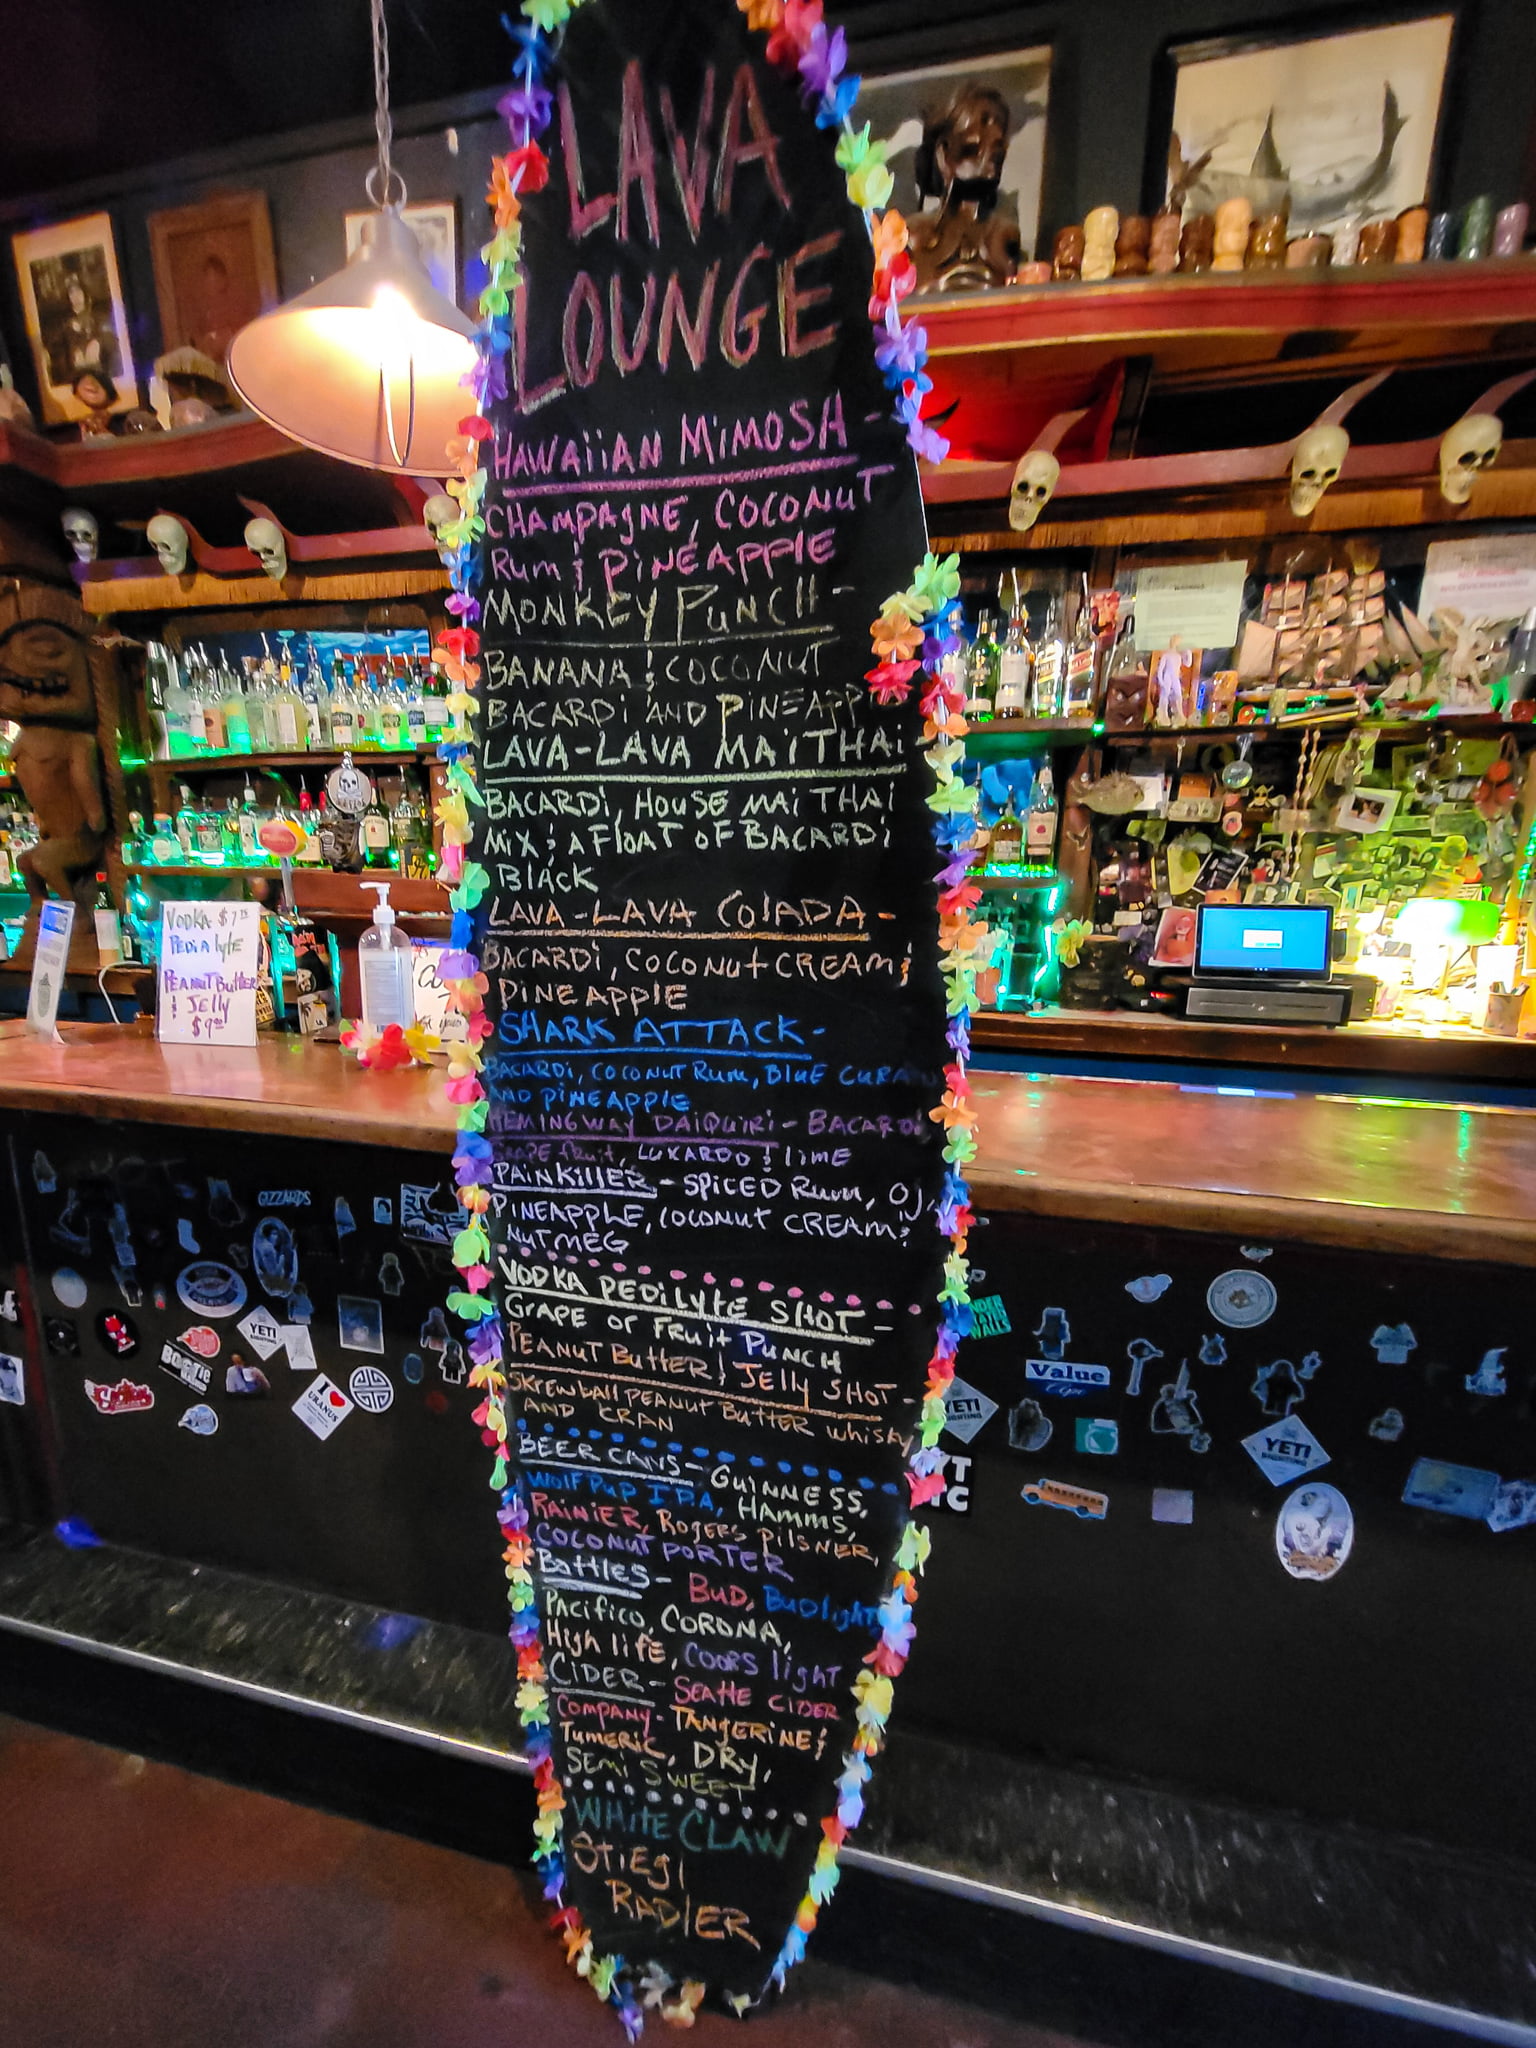 LAVA
LOUNGE
HAWAiiAN MiMOSA -
CHAMPAGNE, COCONUT
Rum & PiNEAPPlE
MONKEY PUNCH -
BANANA & COCONUT
BACARDi AND PiNEAPP
LAVA-LAVA MAi THAi
BACARDi, HOUSE MAi THAi
MiX & A FlOAT OF BACARDi
BlAcK
LAVA-LAVA COlADA -
BACARDi, COCONUt CREAM &
PiNEAPPlE
SHARK ATTACK -
BACARDi, COCONUT Rum, BlUE CURA
AND PiNEAPPlE
HEMINGWAY DAiQUiRi - BACARDi
GRAPE fruit, LUXARDO & liME
PAiNKillER - SPiCED Rum, OJ,
PiNEAPPLE, COCONUT CREAM &
NUTMEG
VODKA PEDiLYtE SHOT -
GrAPE or FruiT PUNCH
PEANUT BuHER & JElly SHOT -
SKrEWball PEANUT BuTTER whisky
AND CRAN
BEER CANS - GUiNNESS,
WOlFPuP I.P.A, HAMMS,
RAiNiER, ROGERS PilSNER,
COCONUT PORTER
BottlES - BUD, BUDlight
PACifico, CORONA,
High lifE, COORS light
CiDER - SEAttlE CIDER
COMPANY - TANGERiNE &
TUMERiC, DRY,
SEMi SWEET
WHitE CLAW
STiEgl
RADlER
VODKA $7
PEDiAlytE
PEANUT ButtER
& JElly
$9.00
GIZZARDS
YETI
BOOGIE
I
URANUS
Value
YETI
YETI